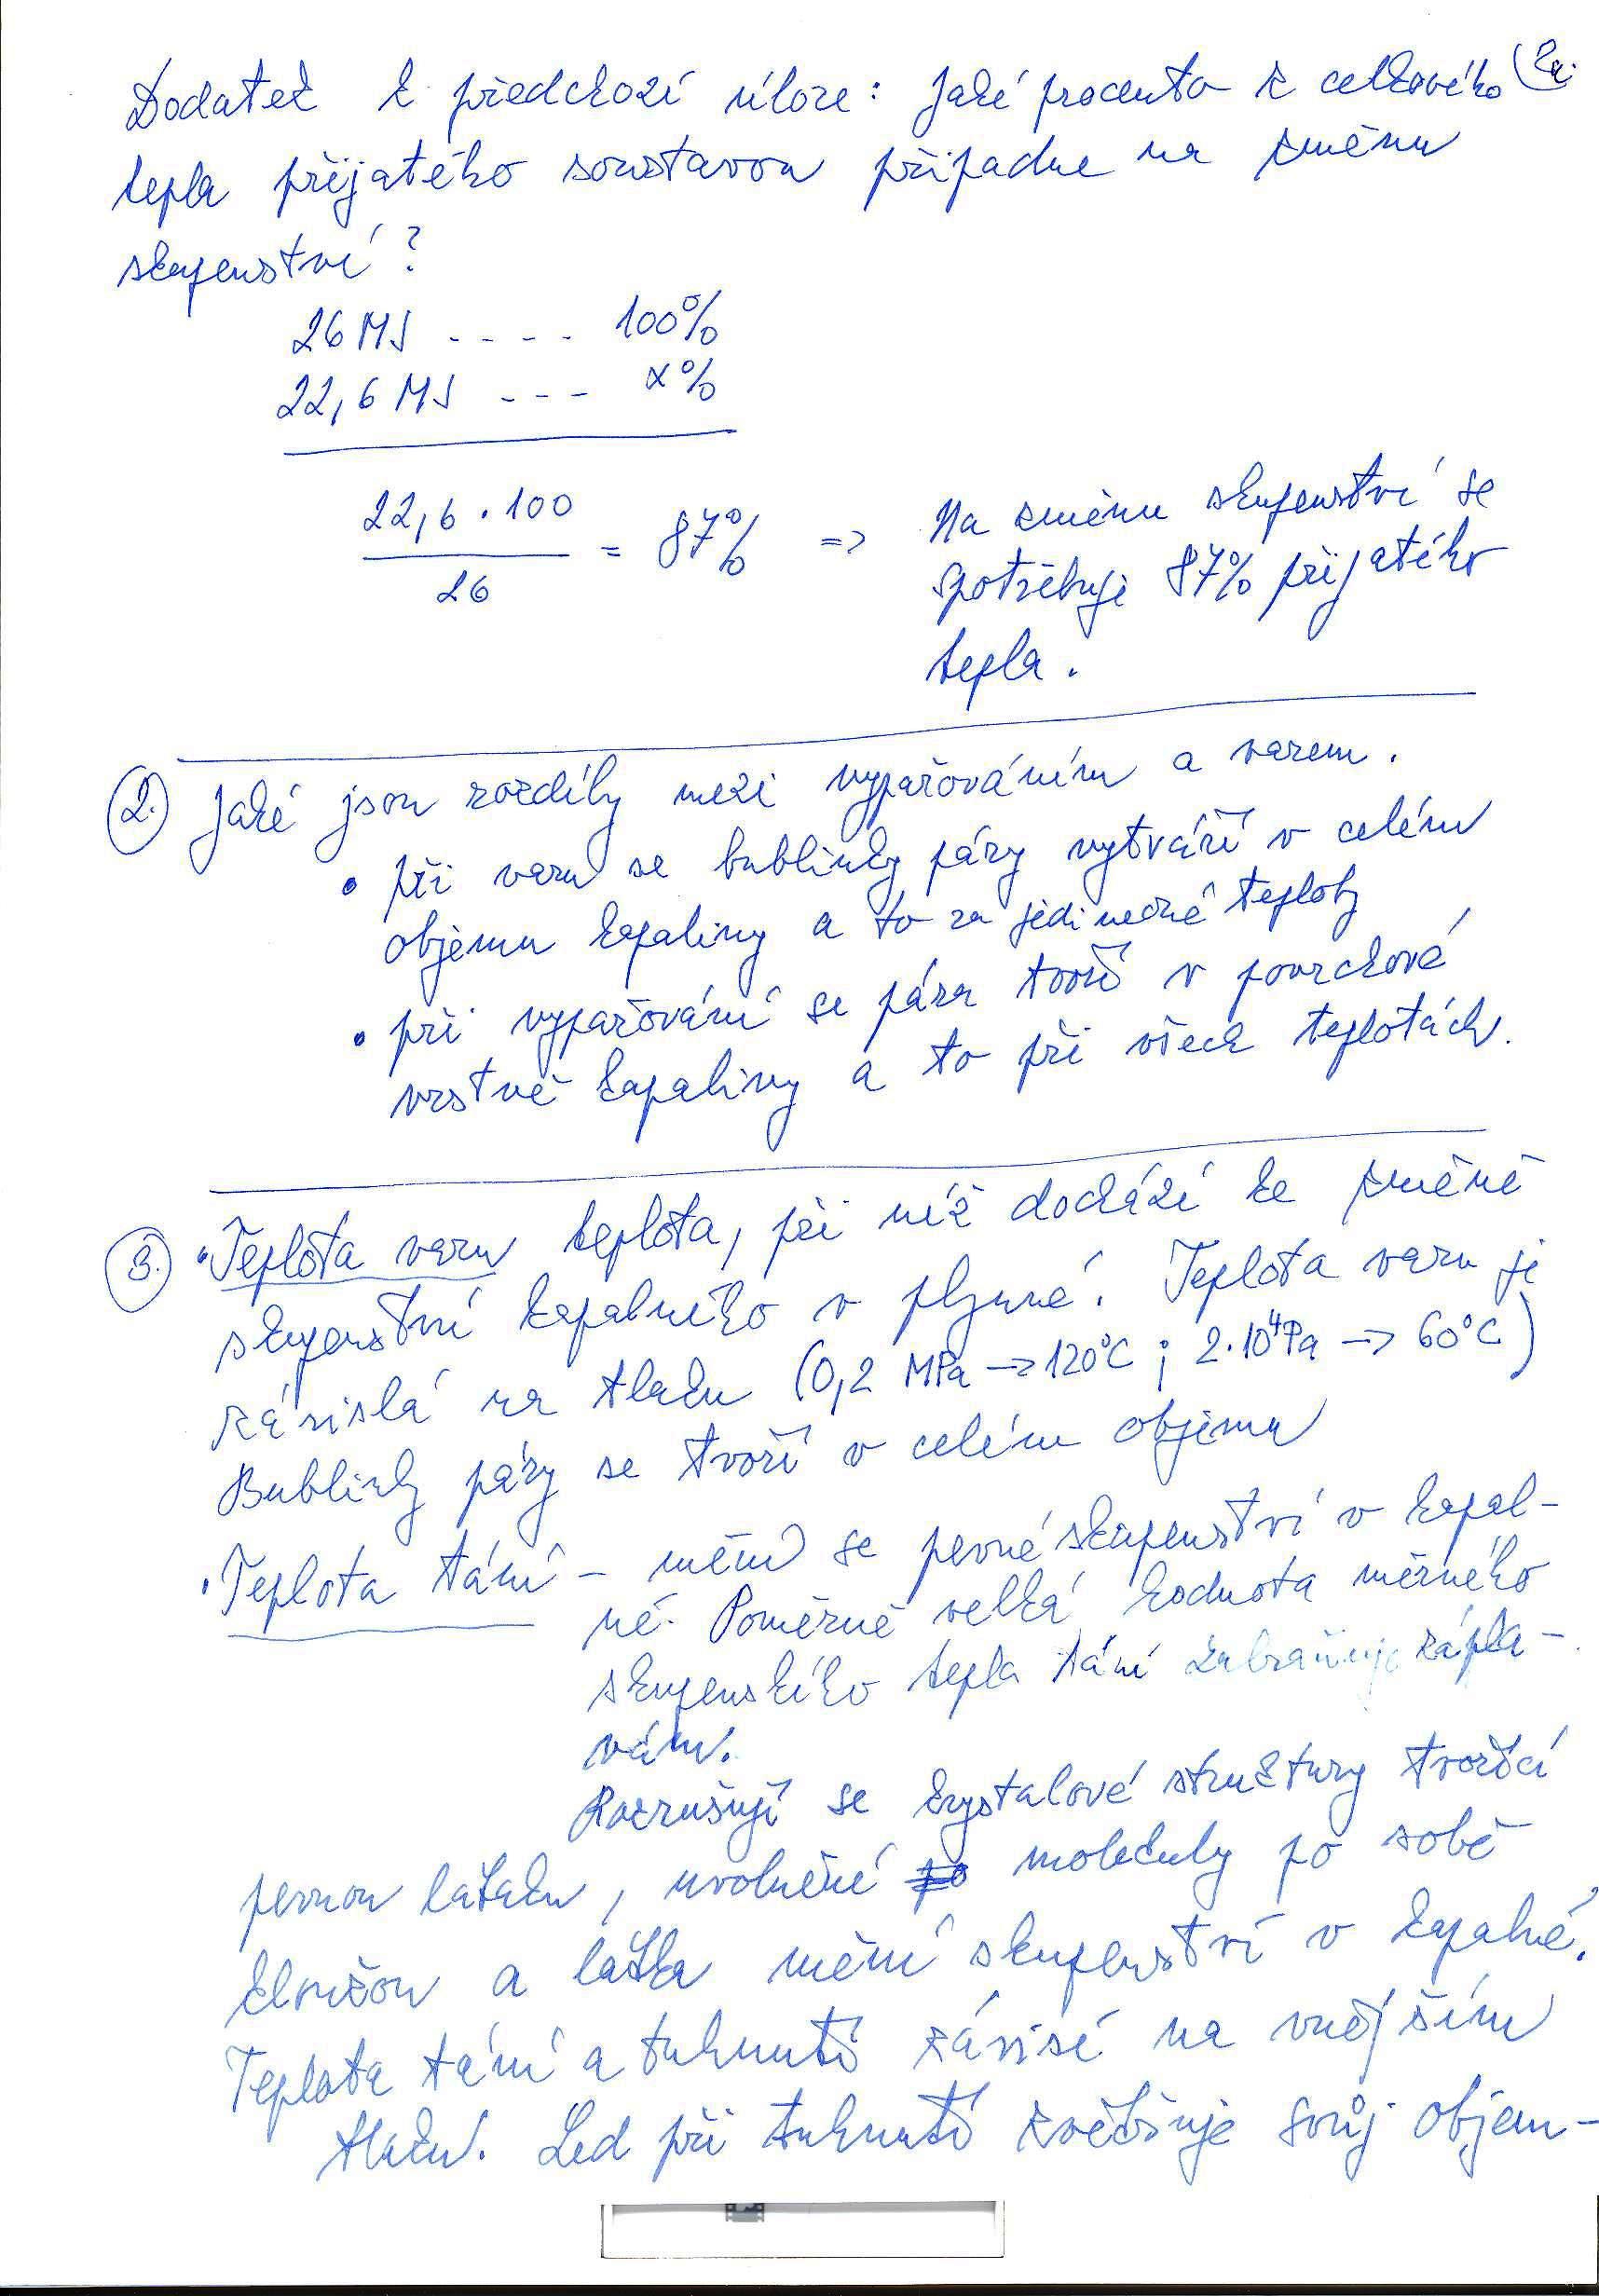 Dodatek k předchozí úloze: Jaké procento z celkového
tepla přijatého soustavou připadne na změnu
skupenství?
26 MJ .... 100%
22,6 MJ --- x%
22,6 · 100
= 87% =>
26
Na změnu skupenství se
spotřebuje 87% přijatého
tepla.
2. Jaké jsou rozdíly mezi vypařováním a varem.
• při varu se bublinky páry vytváří v celém
objemu kapaliny a to za jedinečné teploty
• při vypařování se pára tvoří v povrchové
vrstvě kapaliny a to při všech teplotách.
3. • Teplota varu teplota, při níž dochází ke změně
skupenství kapalného v plynné. Teplota varu je
závislá na tlaku (0,2 MPa -> 120°C ; 2·10⁴Pa -> 60°C)
Bublinky páry se tvoří v celém objemu
• Teplota tání - mění se pevné skupenství v kapal-
né. Poměrně velká hodnota měrného
skupenského tepla tání zabraňuje zápla-
vám.
Rozrušují se krystalové struktury tvořící
pevnou látku, uvolněné molekuly po sobě
kloužou a látka mění skupenství v kapalné.
Teplota tání a tuhnutí závisí na vnějším
tlaku. Led při tuhnutí zvětšuje svůj objem -